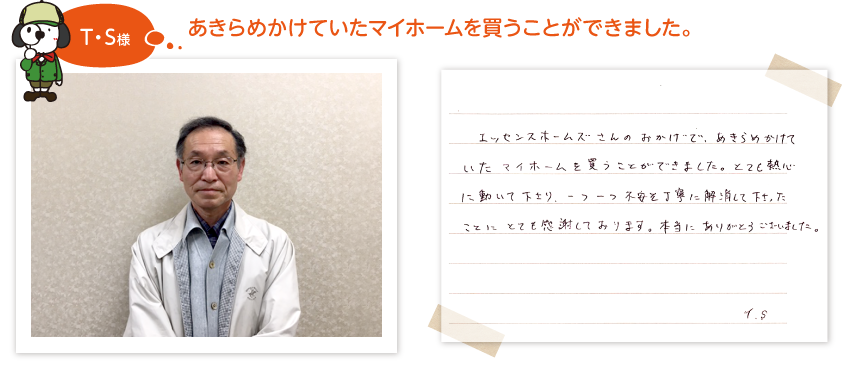 T・S様
あきらめかけていたマイホームを買うことができました。
エッセンスホームズさんのおかげで、あきらめかけて
いたマイホームを買うことができました。とても熱心
に動いて下さり、一つ一つ不安を丁寧に解消して下さった
ことにとても感謝しております。本当にありがとうございました。
T.S